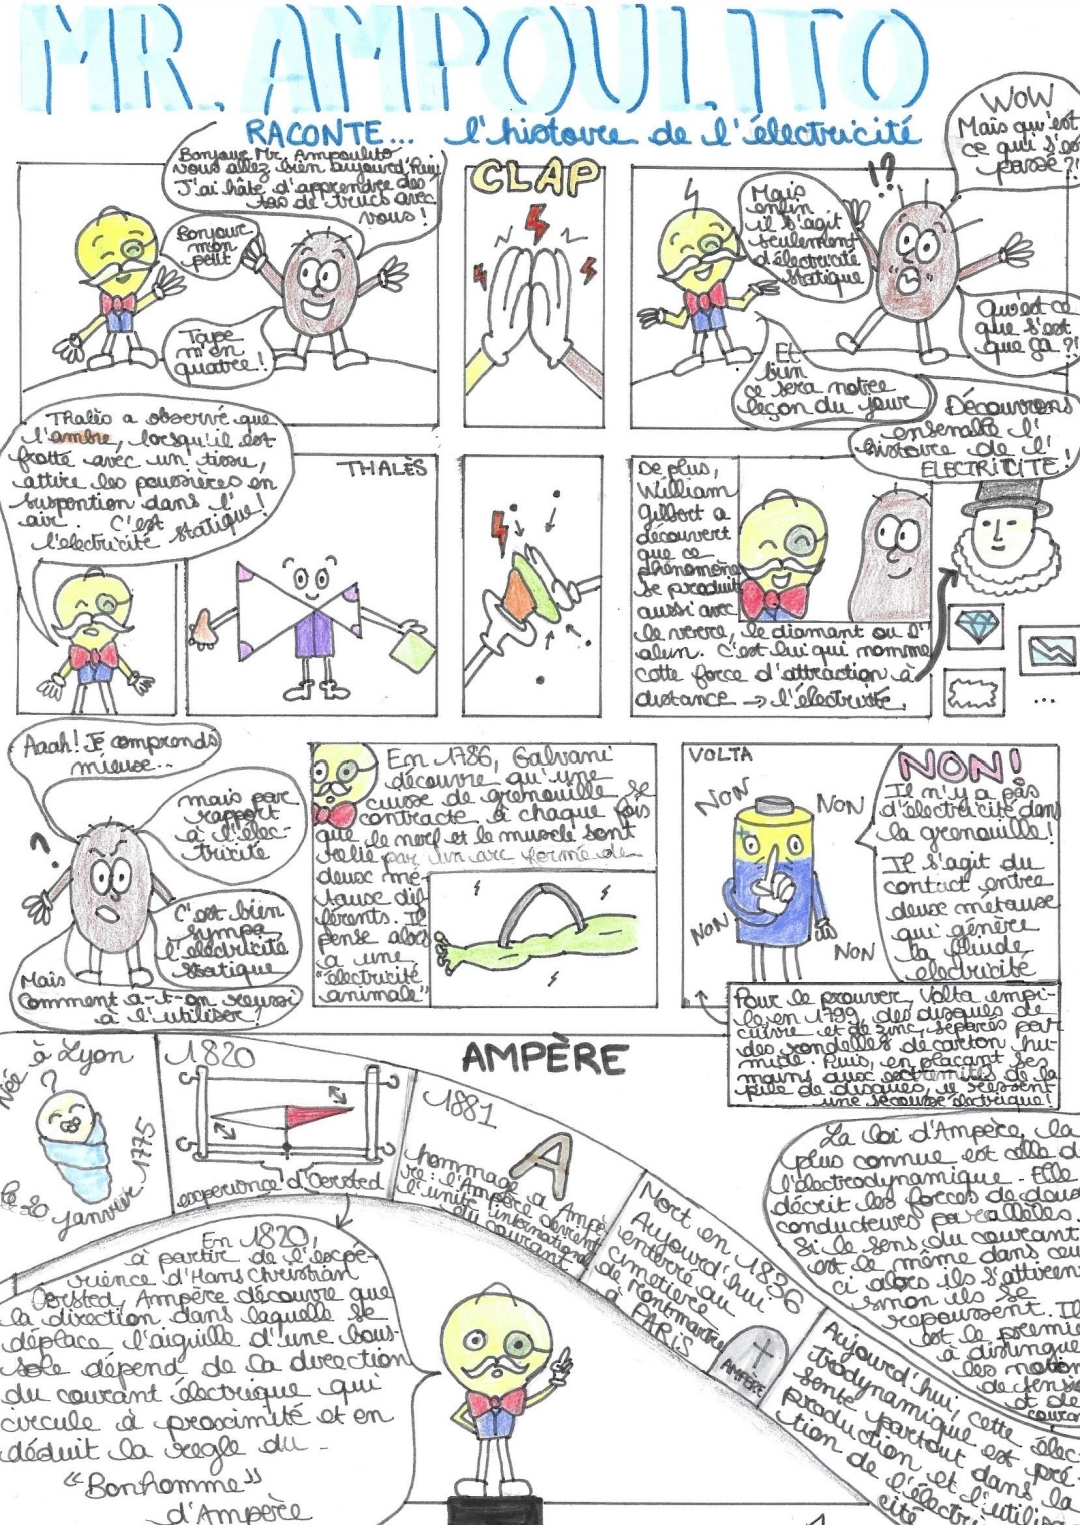 MR. AMPOULITO
RACONTE... l'histoire de l'électricité
Bonjour Mr. Ampoulito
vous allez bien aujourd'hui
J'ai hâte d'apprendre des
tas de trucs avec
vous !
Bonjour
mon
petit
Tape
m'en
quatre !
CLAP
WOW
Mais qu'est
ce qui s'est
passé ?!
!?
Mais
enfin
il s'agit
seulement
d'électricité
statique
Qu'est ce
que s'est
que ça ?!
Et
bien
ce sera notre
leçon du jour
Découvrons
ensemble l'
histoire de l'
ELECTRICITÉ !
Thalès a observé que
l'ambre, lorsqu'il est
frotté avec un tissu,
attire les poussières en
suspention dans l'
air. C'est
l'electricité statique !
THALÈS
De plus,
William
Gilbert a
découvert
que ce
phénomène
se produit
aussi avec
le verre, le diamant ou l'
alun. C'est lui qui nomme
cette force d'attraction à
distance → l'électricité.
...
Aaah ! Je comprends
mieuse...
mais par
rapport
à l'élec-
tricité
?
C'est bien
sympa
l'électricité
statique
Mais
comment a-t-on reussi
à l'utiliser ?
En 1786, Galvani
découvre qu'une
cuisse de grenouille se
contracte à chaque fois
que le nerf et le muscle sont
relié par un arc formé de
deux mé-
taux dif-
férents. Il
pense alors
à une
"électricité
animale"
VOLTA
NON
NON
NON
NON
NON !
Il n'y a pas
d'électricité dans
la grenouille !
Il s'agit du
contact entre
deux métaux
qui génère
la fluide
electricité
Pour le prouver, Volta empi-
la en 1799, des disques de
cuivre et de zinc, séparés par
des rondelles de carton hu-
mide. Puis, en plaçant ses
mains aux extremités de la
pile de disques, il ressent
une secousse électrique !
AMPÈRE
Née à Lyon
?
le 20 janvier 1775
1820
experience d'Oersted
1881
A
hommage a Ampè
re : l'Ampère devient
l'unité internationale
du courant
Mort en 1836
Aujourd'hui
enterré au
cimetière
de Montmartre
à PARIS
AMPÈRE
Aujourd'hui, cette élec-
trodynamique est pré-
sente partout dans la
production et l'utilisa-
tion de l'électri
cité
La loi d'Ampère, la
plus connue est celle d
l'électrodynamique. Elle
décrit les forces de deux
conducteurs parallèles.
Si le sens du courant
est le même dans ceux
ci alors ils s'attirent
sinon ils se
repoussent. Il
est le premie
à distingue
les notion
de tensio
et de
courant
En 1820,
à partir de l'expé-
rience d'Hans Christian
Oersted, Ampère découvre que
la direction dans laquelle se
déplace l'aiguille d'une bous-
sole dépend de la direction
du courant électrique qui
circule à proximité et en
déduit la règle du -
"Bonhomme"
d'Ampère